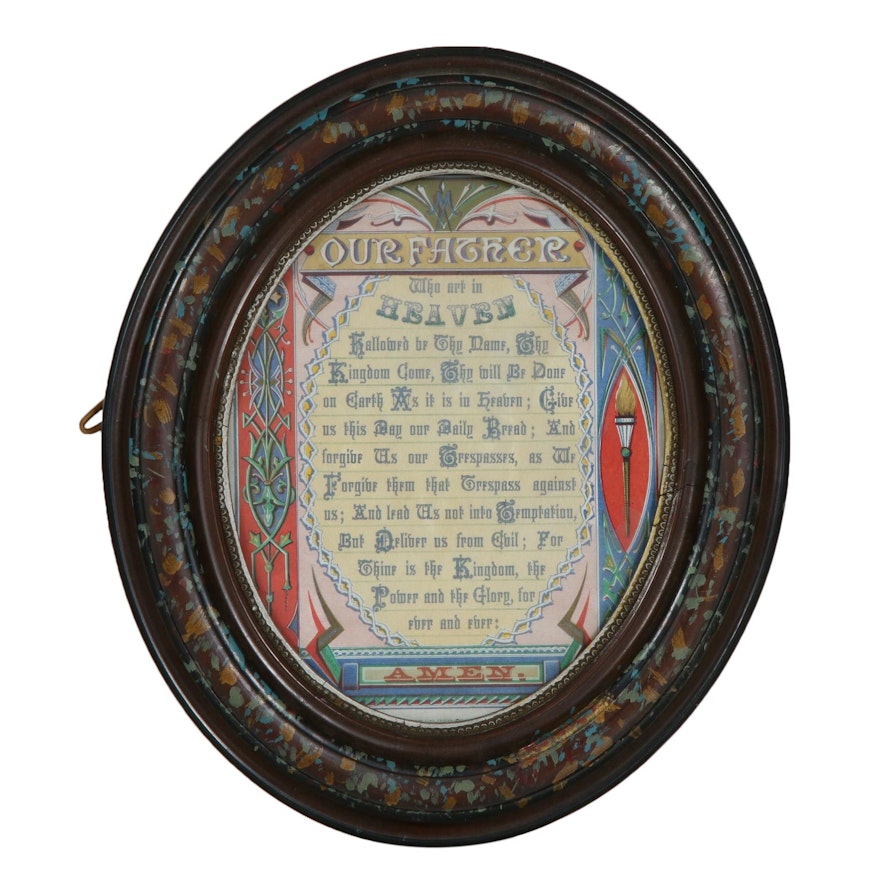 OUR FATHER
Who art in
HEAVEN
Hallowed be Thy Name, Thy
Kingdom Come, Thy will Be Done
on Earth As it is in Heaven; Give
us this Day our Daily Bread; And
forgive Us our Trespasses, as We
Forgive them that Trespass against
us; And lead Us not into Temptation,
But Deliver us from Evil; For
Thine is the Kingdom, the
Power and the Glory, for
ever and ever:
AMEN.